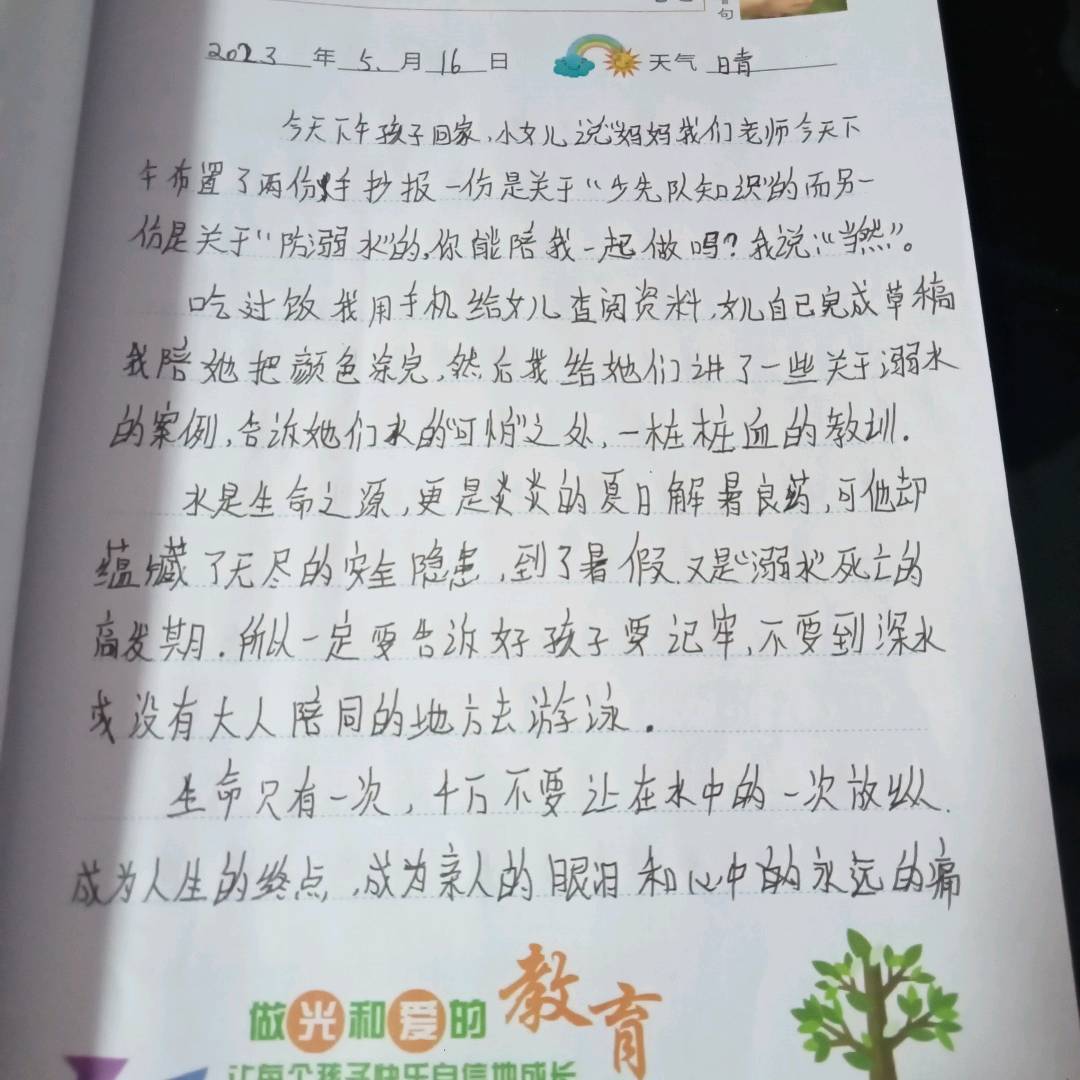 句
2023年5.月16日 天气 晴
今天下午孩子回家,小女儿说"妈妈我们老师今天下
午布置了两份手抄报一份是关于"少先队知识"的而另一
份是关于"防溺水"的,你能陪我一起做吗?我说:"当然"。
吃过饭我用手机给女儿查阅资料,女儿自己完成草稿
我陪她把颜色涂完,然后我给她们讲了一些关于溺水
的案例,告诉她们水的"可怕"之处,一桩桩血的教训.
水是生命之源,更是炎炎的夏日解暑良药,可他却
蕴藏了无尽的安全隐患,到了暑假又是"溺水"死亡的
高发期.所以一定要告诉好孩子要记牢,不要到深水
或没有大人陪同的地方去游泳.
生命只有一次,千万不要让在水中的一次放纵.
成为人生的终点,成为亲人的眼泪和心中的永远的痛
做光和爱的教育
让每个孩子快乐自信地成长